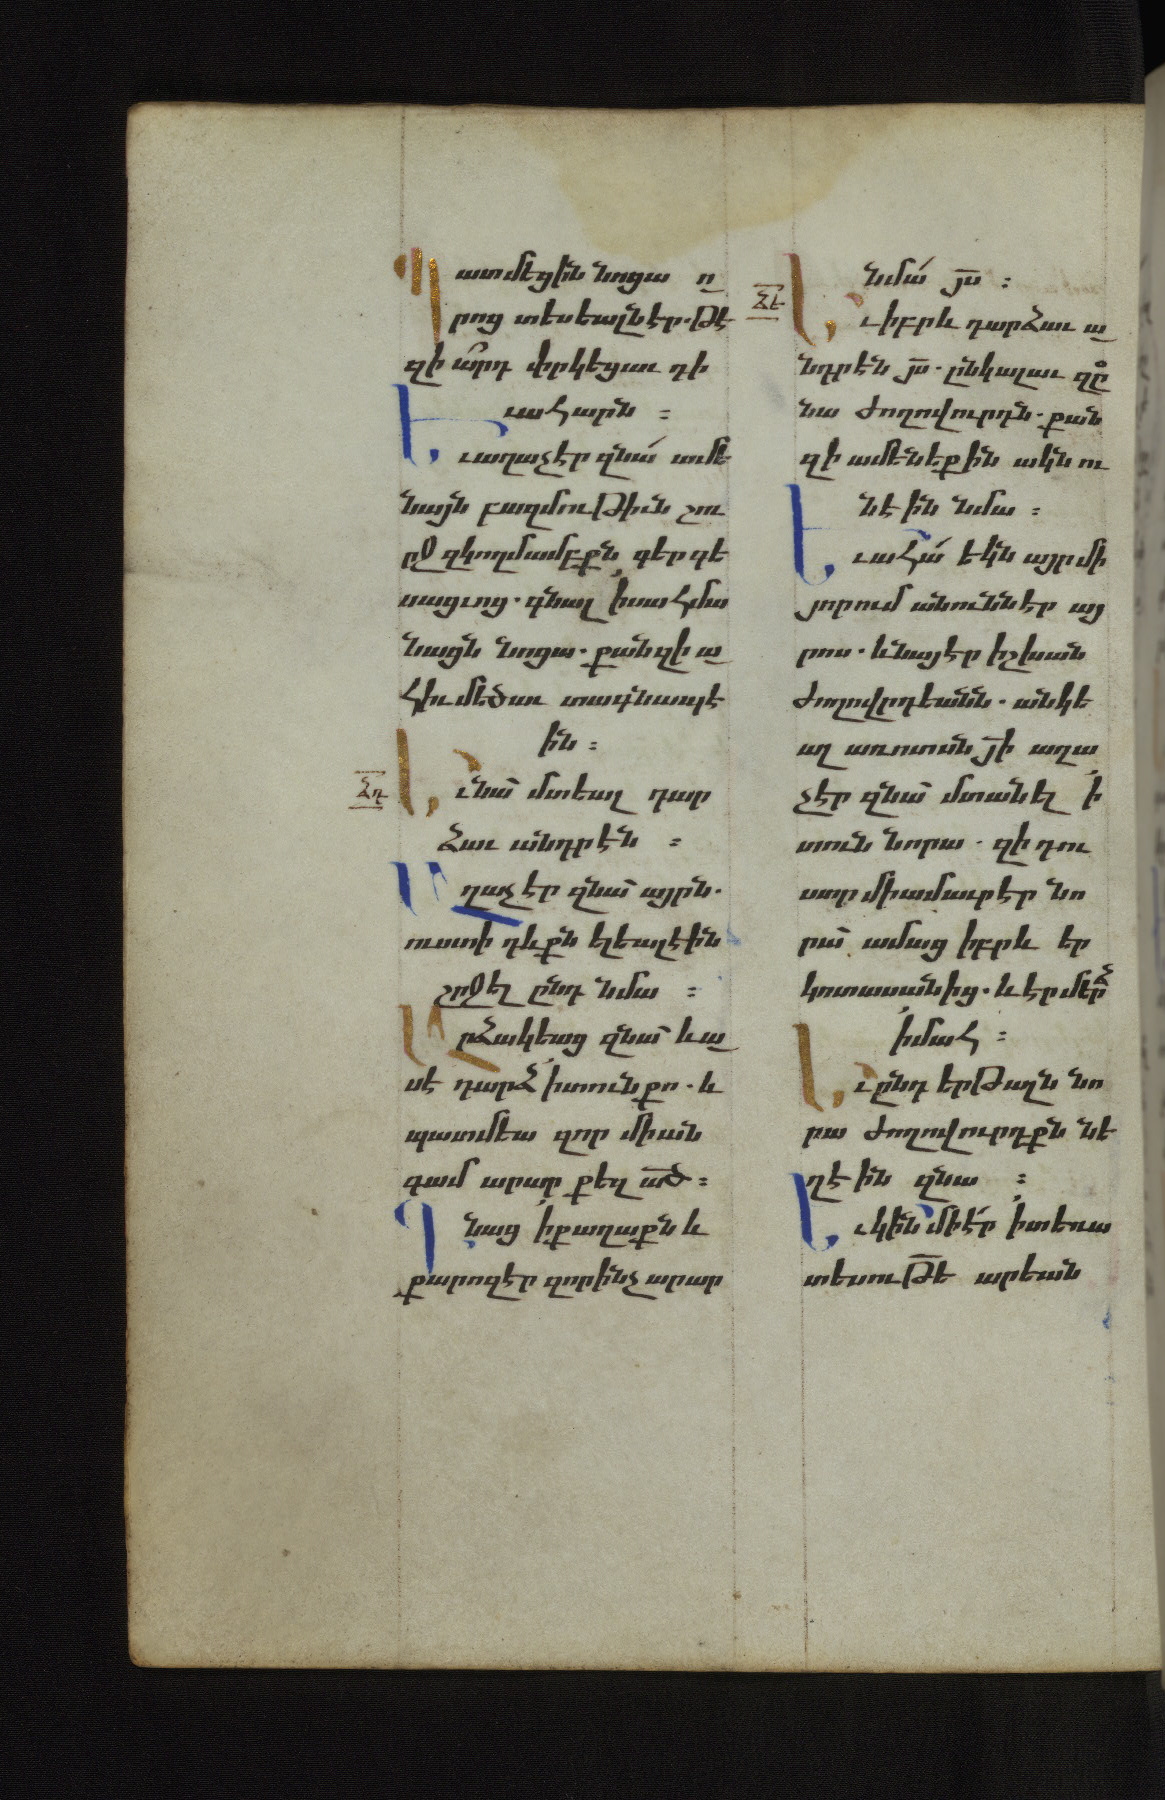 Պատմեցին նոցա ո
րոց տեսեալն էր. թէ
զի՛արդ փրկեցաւ դի
ւահարն :
Եւ աղաչէր զնա ամե
նայն բազմութիւն շու
րջ զկողմամբքն գերգե
սացւոց. գնալ ի սահմա
նացն նոցա. քանզի ա
հիւ մեծաւ տագնապէ
ին :
ՃԴ
Եւ նա մտեալ դար
ձաւ անդրէն :
Աղաչէր զնա այրն.
ուստի դևքն ելեալ էին
շրջել ընդ նմա :
Արձակեաց զնա և ա
սէ դարձ ի տուն քո. և
պատմեա զոր միան
գամ արար քեզ ած :
Գնաց ի քաղաքն և
քարոզէր զոր ինչ արար
նմա յս :
ՃԵ
Եւ իբրև դարձաւ ա
նդրէն յս. ընկալաւ զը
նա ժողովուրդն. քան
զի ամենեքին ակն ու
նէին նմա :
Եւ ահա եկն այր մի
յորում անուն էր այ
րոս. և նա էր իշխան
ժողովրդեանն. անկե
ալ առ ոտսն յի աղա
չէր զնա մտանել ի
տուն նորա. զի դու
ստր միամաւր էր նո
րա ամաց իբրև եր
կոտասանից. և էր մերձ
ի մահ :
Եւ ընդ երթալն նո
րա ժողովուրդքն նե
ղէին զնա :
Եւ կին մի էր ի տեռա
տեսութե արեան